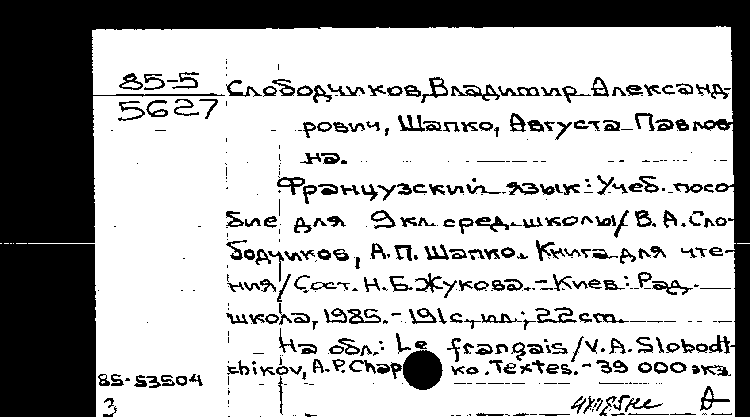 85-5
5627
Слободчиков, Владимир Александ-
рович, Шапко, Августа Павлов
на.
Французский язык: Учеб. посо
бие для 9 кл. сред. школы / В. А. Сло-
бодчиков, А. П. Шапко. Книга для чте-
ния / Сост. Н. Б. Жукова. - Киев: Рад.
школа, 1985. - 191 с., ил.; 22 cm.
На обл.: Le français / V. A. Slobodt-
chikov, A. P. Chap ko. Textes. - 39 000 экз
85-53504
3